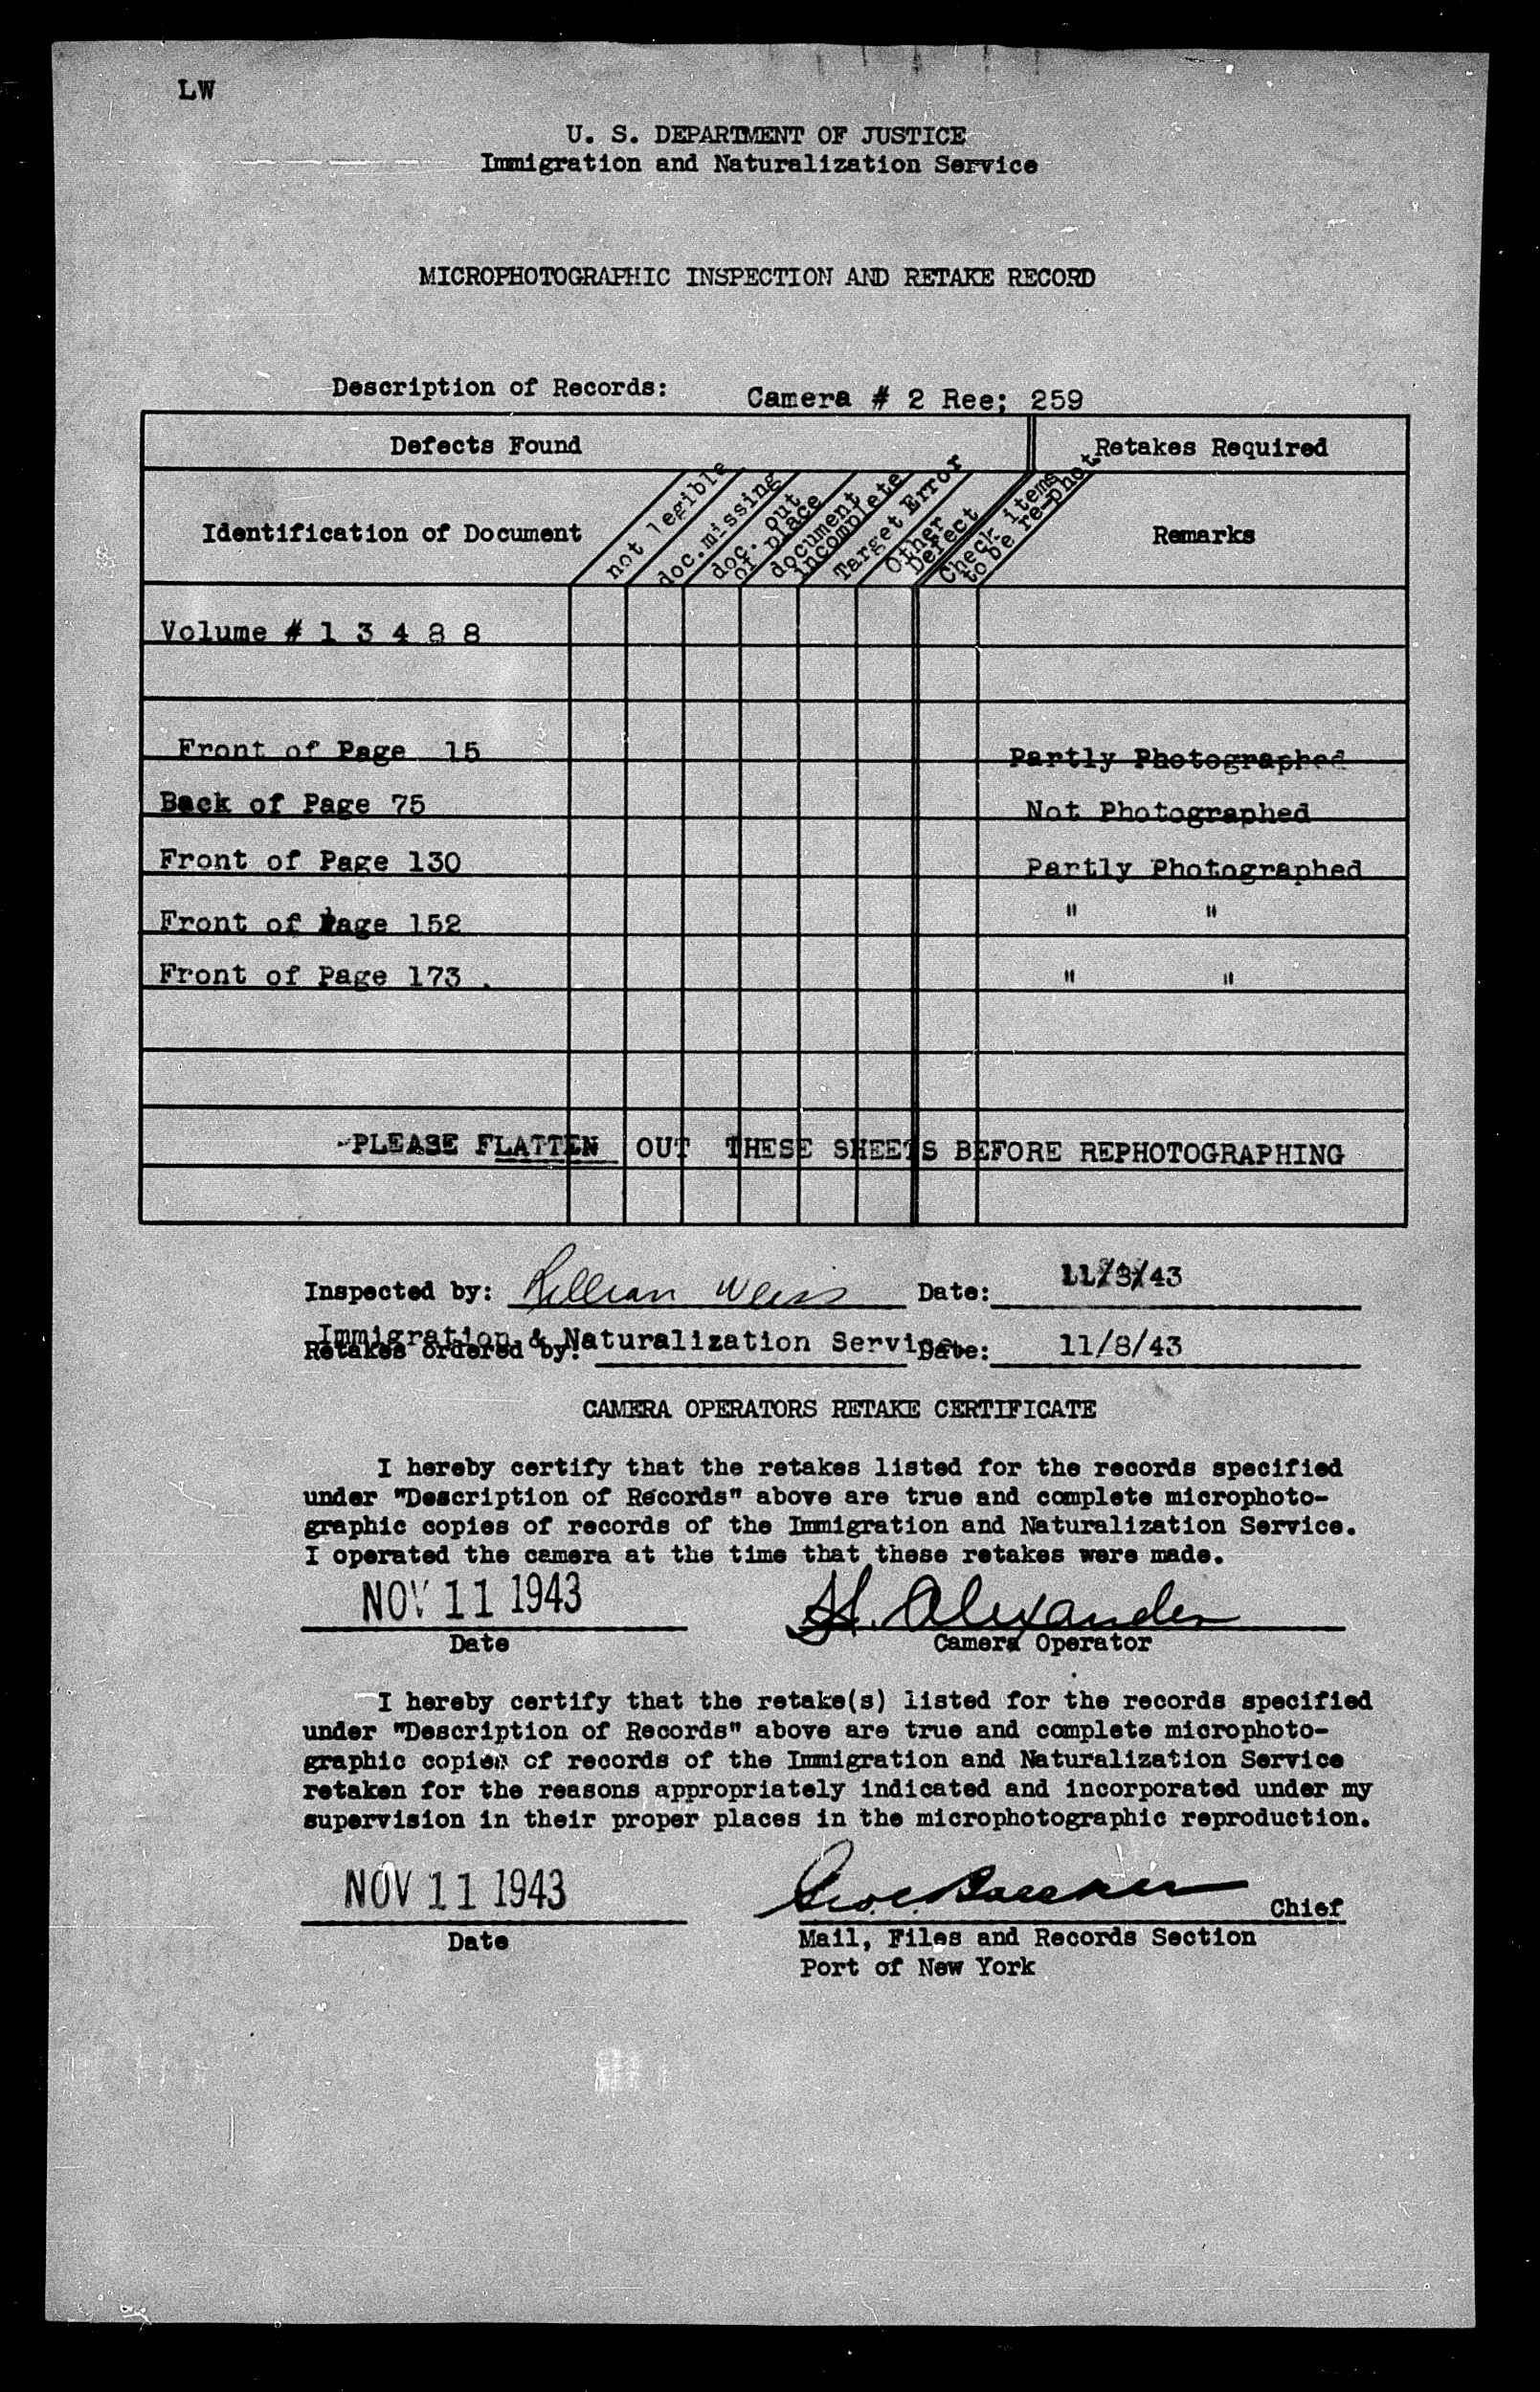 LW
U. S. DEPARTMENT OF JUSTICE
Immigration and Naturalization Service
MICROPHOTOGRAPHIC INSPECTION AND RETAKE RECORD
Description of Records: Camera # 2 Ree; 259
Defects Found Retakes Required
Identification of Document
not legible
doc.missing
doc. out
of place
document
incomplete
Target Error
Other
Defect
Check items
to be re-phot
Remarks
Volume # 1 3 4 8 8
Front of Page 15 Partly Photographed
Back of Page 75 Not Photographed
Front of Page 130 Partly Photographed
Front of Page 152 " "
Front of Page 173 . " "
-PLEASE FLATTEN OUT THESE SHEETS BEFORE REPHOTOGRAPHING
Inspected by: Lillian Weiss Date: 11/8/43
Immigration & Naturalization Service
Retakes ordered by: Date: 11/8/43
CAMERA OPERATORS RETAKE CERTIFICATE
I hereby certify that the retakes listed for the records specified
under "Description of Records" above are true and complete microphoto-
graphic copies of records of the Immigration and Naturalization Service.
I operated the camera at the time that these retakes were made.
NOV 11 1943 H. Alexander
Date Camera Operator
I hereby certify that the retake(s) listed for the records specified
under "Description of Records" above are true and complete microphoto-
graphic copies of records of the Immigration and Naturalization Service
retaken for the reasons appropriately indicated and incorporated under my
supervision in their proper places in the microphotographic reproduction.
NOV 11 1943 Chief
Date Mail, Files and Records Section
Port of New York